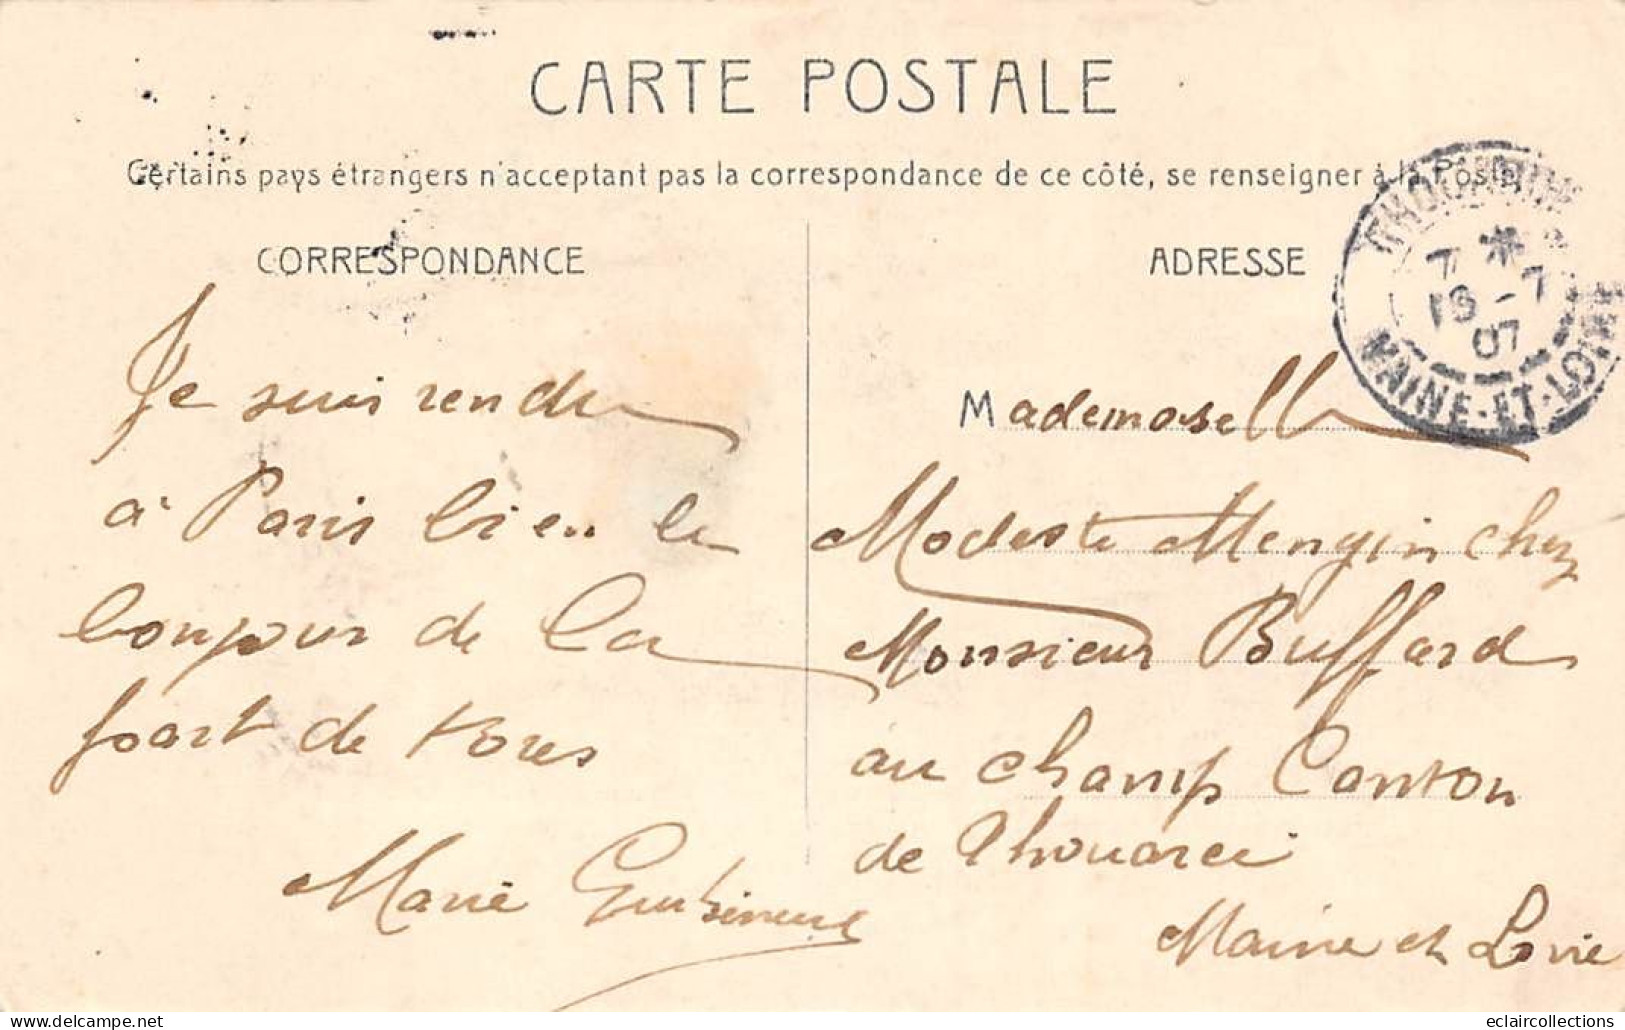 CARTE POSTALE
Certains pays étrangers n'acceptant pas la correspondance de ce côté, se renseigner à la Poste
CORRESPONDANCE
Je suis rendu
à Paris bien le
bonjour de la
part de tores
Marie
ADRESSE
Mademoiselle
Modeste Mengin chez
Monsieur Buffard
au champ Canton
de Thouarcé
Maine et Loire
THOUARCÉ
MAINE-ET-LOIRE
eclaircollections
delcampe.net